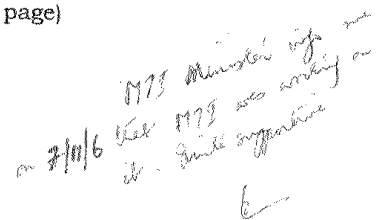 page)
MTI Minister info me
on 7/11/6 that MTI was working on
it. Quite supportive